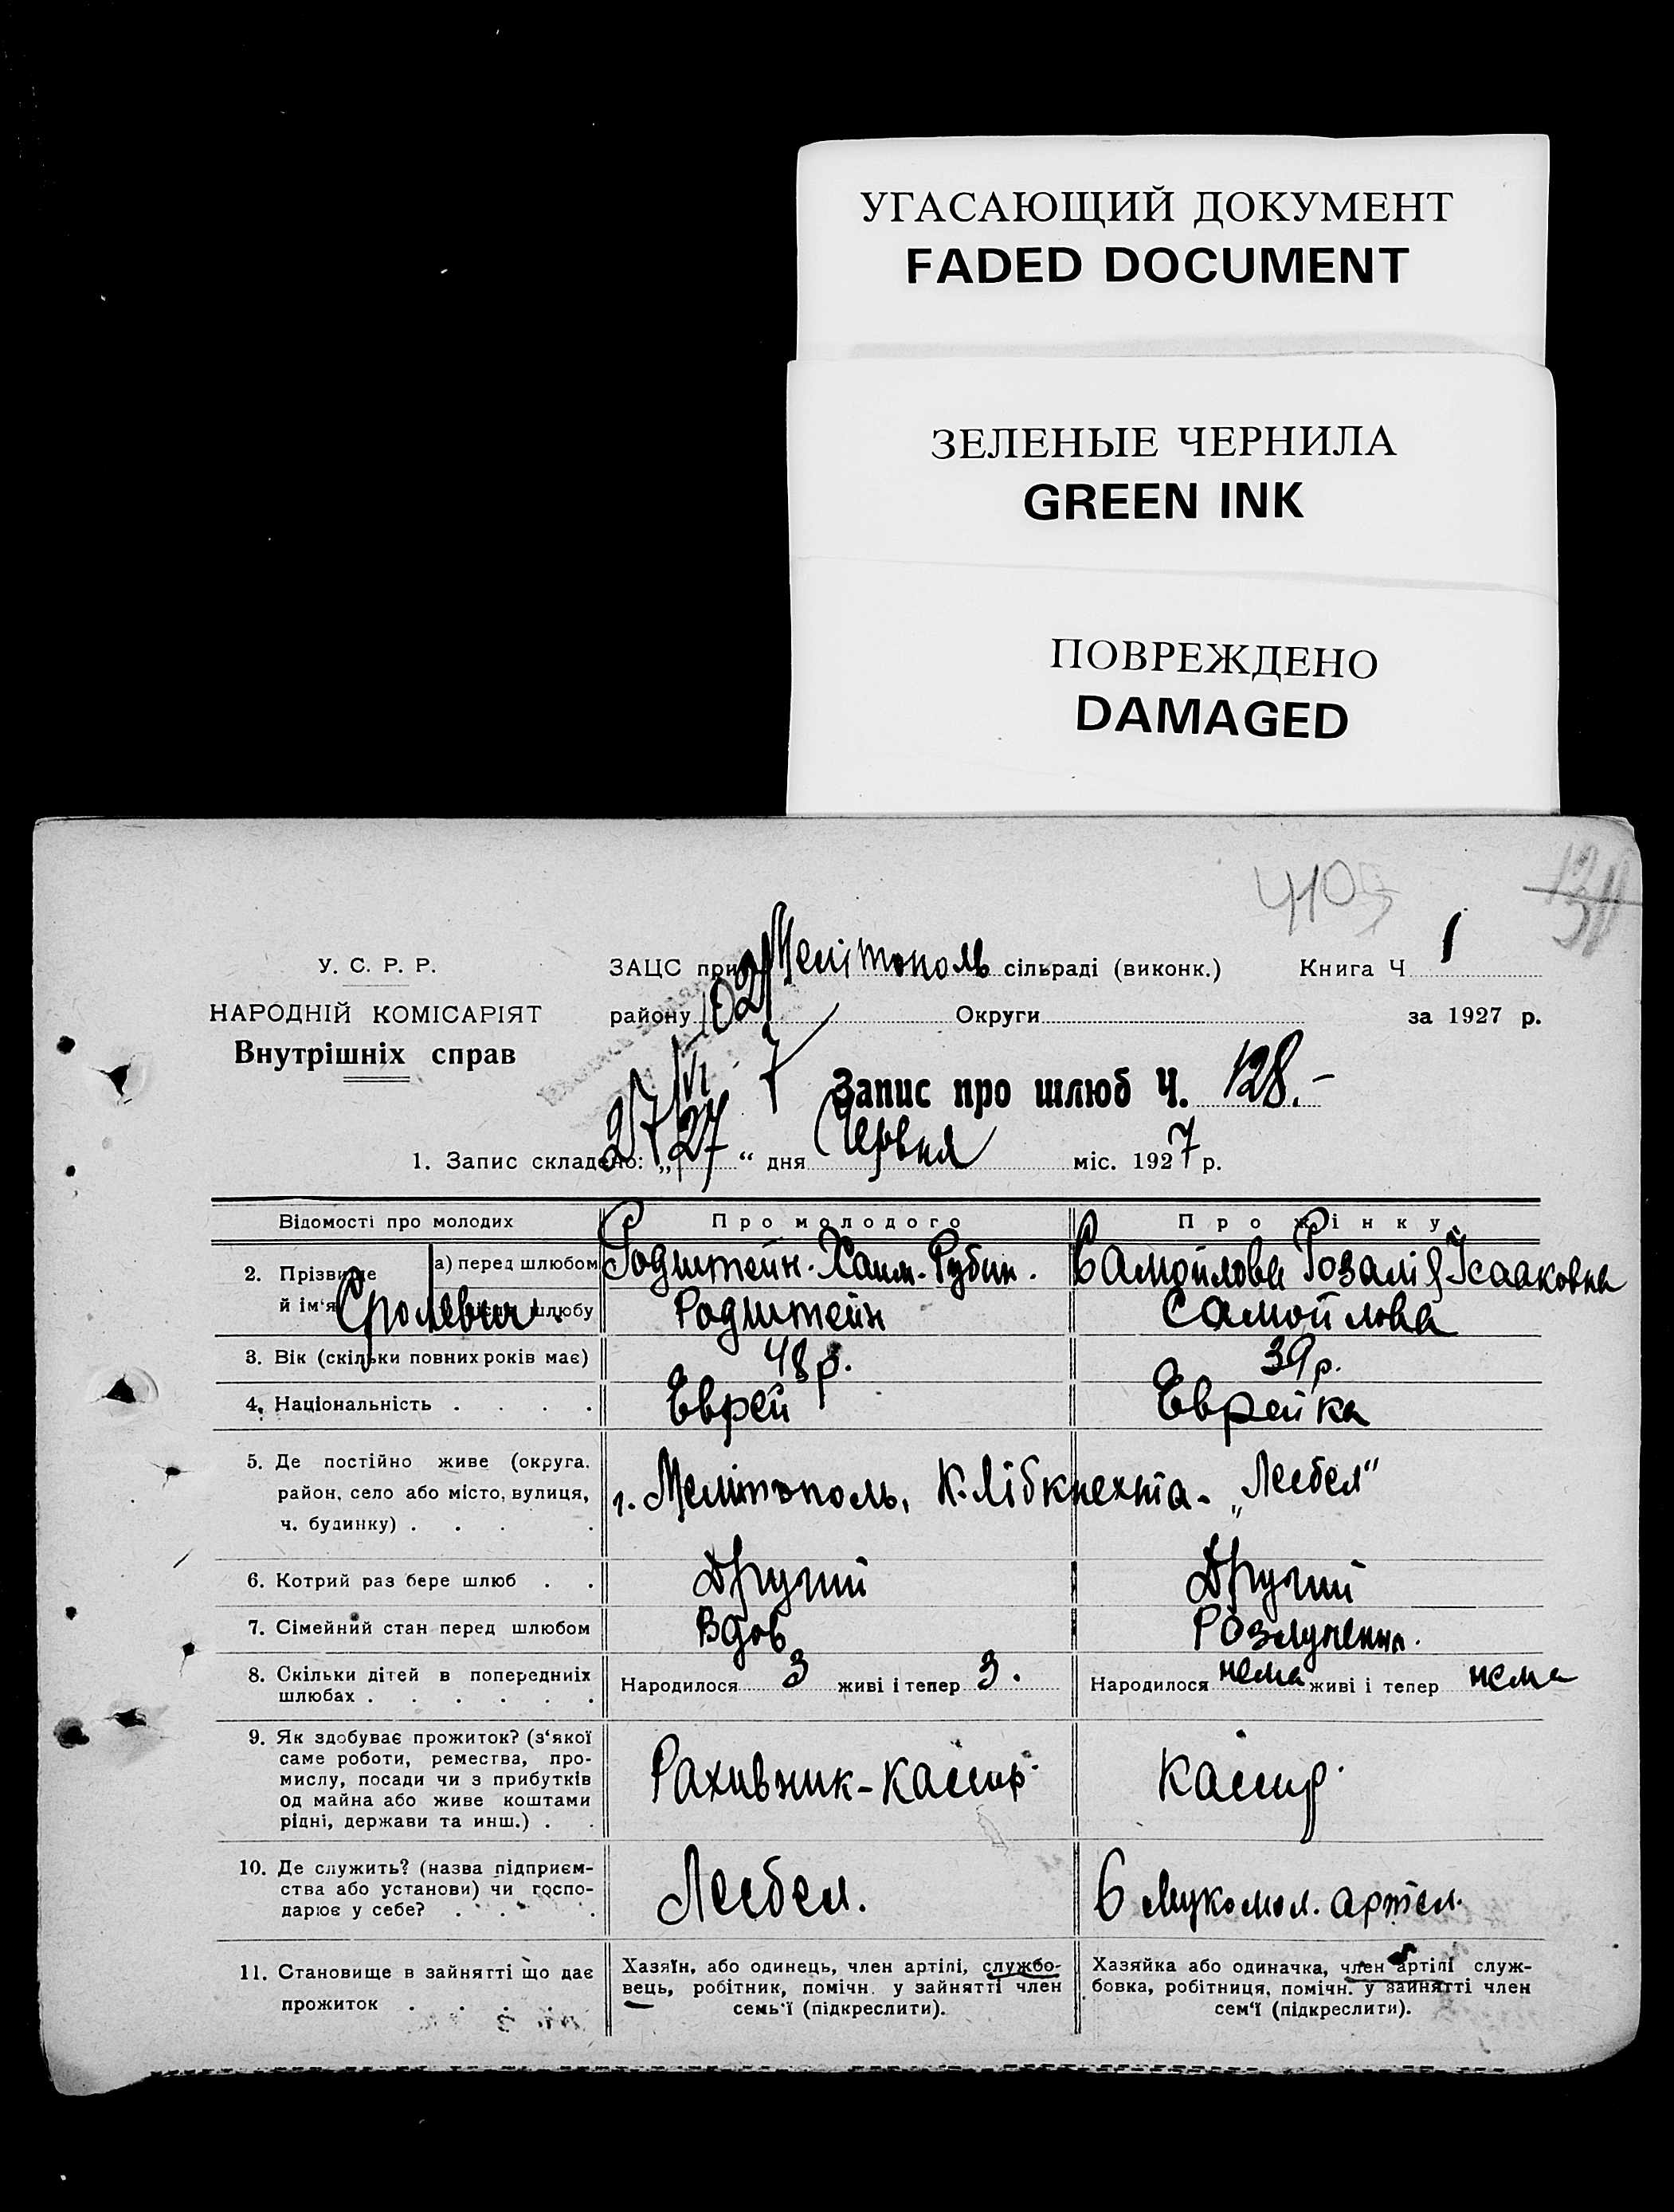 УГАСАЮЩИЙ ДОКУМЕНТ
FADED DOCUMENT
ЗЕЛЕНЫЕ ЧЕРНИЛА
GREEN INK
ПОВРЕЖДЕНО
DAMAGED
4105
У. С. Р. Р.
НАРОДНІЙ КОМІСАРІЯТ
Внутрішніх справ
ЗАЦС при Мелітополь сільраді (виконк.) Книга Ч 1
району Округи за 1927 р.
Запис про шлюб Ч. 128.-
1. Запис складено: „27“ дня Червня міс. 1927 р.
Відомості про молодих Про молодого Про жінку
2. Прізвище й ім'я а) перед шлюбом Родштейн Хаим. Рубин. Самойлова Розалія Ісааковна
шлюбу Родштейн Самойлова
Сролевич
3. Вік (скільки повних років має) 48 р. 39 р.
4. Національність Еврей Еврейка
5. Де постійно живе (округа. район, село або місто, вулиця, ч. будинку) г. Мелитополь, К. Лібкнехта - „Лесбел"
6. Котрий раз бере шлюб Другий Другий
7. Сімейний стан перед шлюбом Вдов Розлучення.
8. Скільки дітей в попередниіх шлюбах Народилося 3 живі і тепер 3. Народилося нема живі і тепер нема
9. Як здобуває прожиток? (з'якої саме роботи, ремества, промислу, посади чи з прибутків од майна або живе коштами рідні, держави та инш.) Рахивник-кассир Кассир
10. Де служить? (назва підприємства або установи) чи господарює у себе? Лесбел. В мукомол. артел.
11. Становище в зайнятті що дає прожиток
Хазяїн, або одинець, член артілі, службовець, робітник, помічн. у зайнятті член семь'ї (підкреслити).
Хазяйка або одиначка, член артілі службовка, робітниця, помічн. у зайнятті член сем'ї (підкреслити).